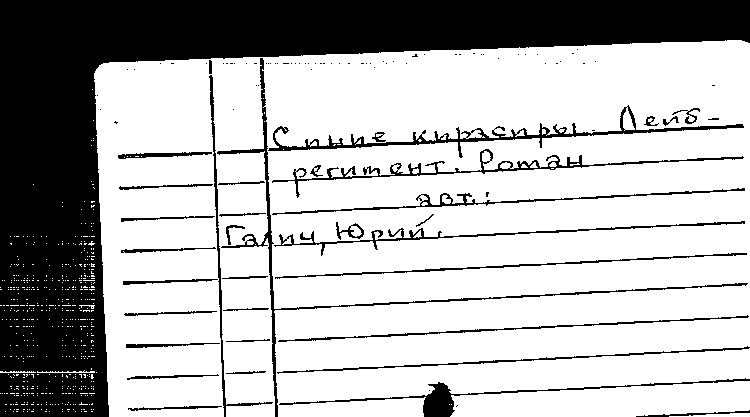 Синие кирасиры. Лейб-
регимент. Роман
авт.:
Галич, Юрий.